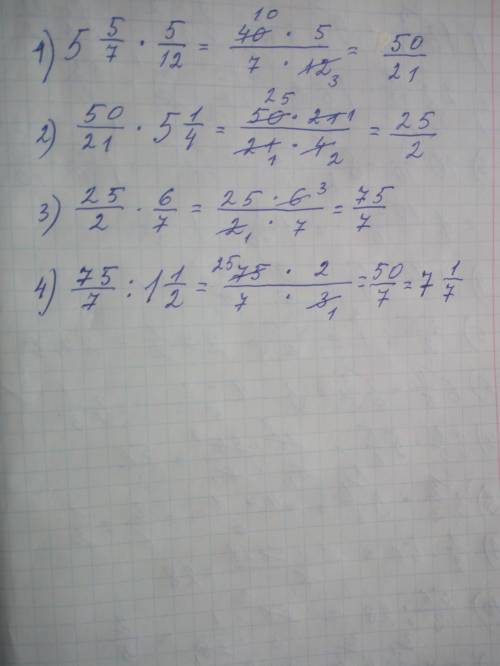 1) 5 5/7 · 5/12 = (40 10 · 5)/(7 · 12 3) = 50/21
2) 50/21 · 5 1/4 = (50 25 · 21 1)/(21 1 · 4 2) = 25/2
3) 25/2 · 6/7 = (25 · 6 3)/(2 1 · 7) = 75/7
4) 75/7 : 1 1/2 = (25 75 · 2)/(7 · 3 1) = 50/7 = 7 1/7